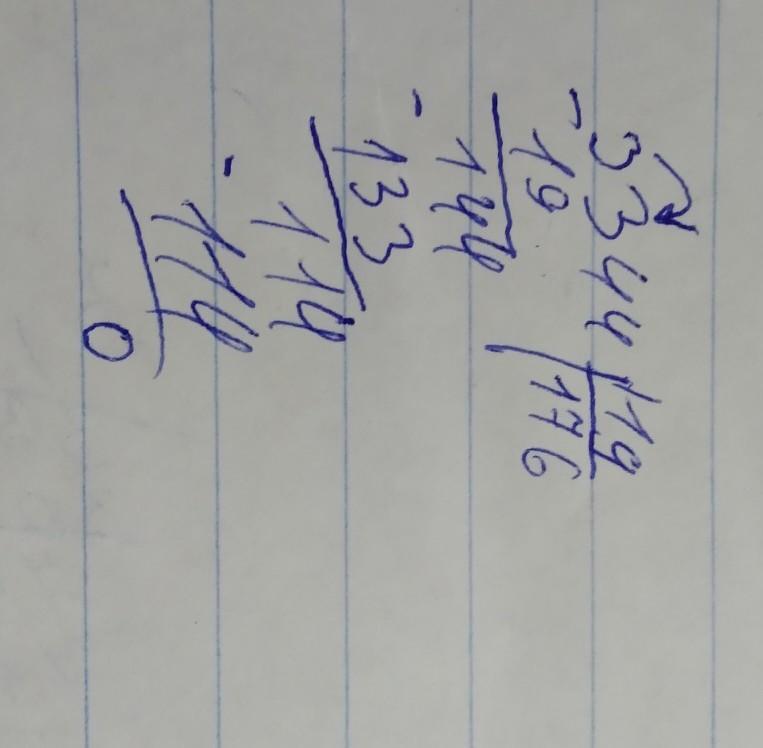 - 3344 | 19
19 | 176
- 144
133
- 114
114
0